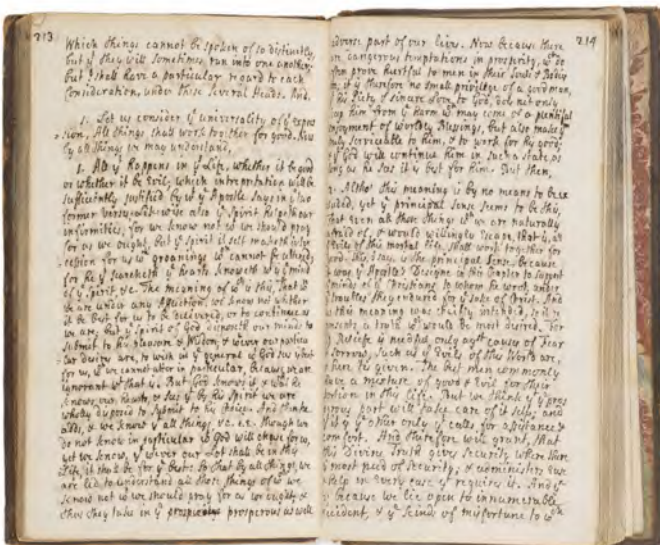 213
Which things cannot be spoken of so distinctly
but yt they will sometimes run into one another
but I shall have a particular regard to each
Consideration, under these Several Heads. And.
1. Let us consider ye universality of ye expres
sion, All things shall work together for good. Now
by all things we may understand,
1. All yt happens in ys Life, whether it be good
or whether it be Evil; which interpretation will be
sufficiently justified by wt ye Apostle says in ye two
former verses. Likewise also ye Spirit helpeth our
infirmities, for we know not wt we should pray
for as we ought, but ye Spirit it self maketh inter
cession for us wth groanings wch cannot be uttered
for he yt searcheth ye hearts knoweth wt is ye mind
of ye Spirit &c. The meaning of wch is this, that wn
we are under any Affliction, we know not whether
it be best for us to be delivered, or to continue as
we are, but ye Spirit of God disposeth our minds to
submit to his pleasure & Wisdom, & wtever our particu
lar desires are, to wish in ye general wt God sees best
for us, if we cannot utter in particular, because we are
ignorant wt that is. But God knows it & who he
knows our hearts, & sees yt by his Spirit we are
wholly disposed to submit to his choice. And then he
adds, & we know yt all things &c. i.e. though we
do not know in particular wt God will chuse for us,
yet we know, yt wtever our Lot shall be in this
Life, it shall be for ye best: So that by all things, we
are led to understand all those things of wch we
know not wt we should pray for as we ought, &
thus they take in ye prosperous as well
214
adverse part of our lives. Now because there
are dangerous temptations in prosperity, wch do
often prove hurtful to men in their Souls & Bodies
too, it is therefore no small privilege of a good man,
his Piety & sincere Love to God, does not only
keep him from ye harm wch may come of a plentiful
enjoyment of worldly Blessings, but also makes ym
truly serviceable to him, & to work for his good;
if God will continue him in such a state as
long as he sees it is best for him. But then,
2. Altho' this meaning is by no means to be ex
cluded, yet ye principal sense seems to be this,
That even all those things wch we are naturally
afraid of, & would willingly escape, that is, all
Evils of this mortal life, shall work together for
good. This I say, is the principal Sense. Because
twas ye Apostle's Designe in this Chapter to support
minds of ye Christians to whom he wrote, under
troubles they endured for ye sake of Christ. And
if this meaning was chiefly intended, so it re
presents a truth wch would be most desired. For
Reliefe is needful only agst causes of Fear
Sorrow, such as ye Evils of this World are,
there to given. The best men commonly
have a mixture of good & Evil for their
portion in this Life. But we think ye pros
perous part will take care of it self, and
yt ye other only calls for assistance &
comfort. And therefore will grant, that
this Divine Truth gives security where there
is most need of Security, & administers true
Help in Every case yt requires it. And
because we lie open to innumerable
accidents, & ye kinds of misfortune to wch